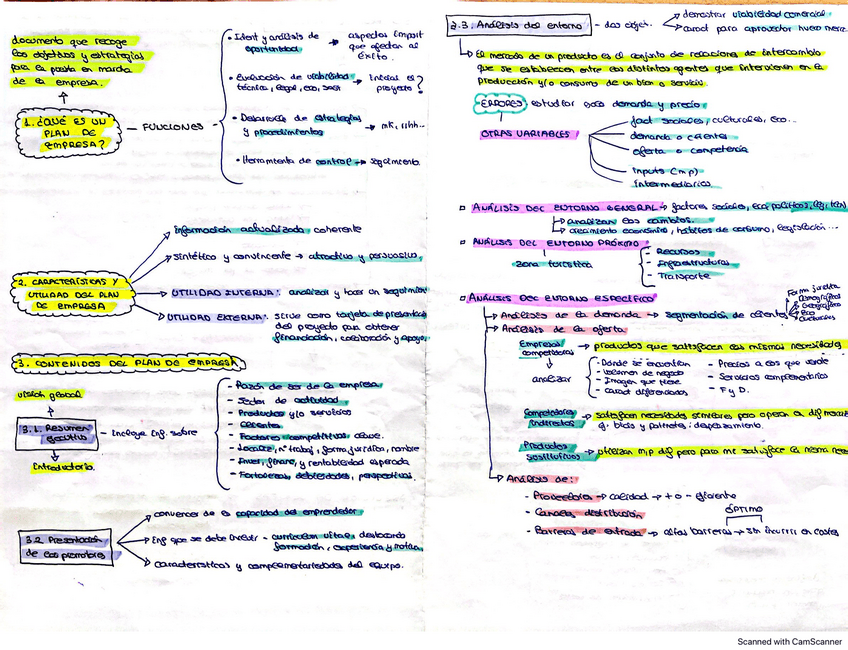 documento que recoge
los objetivos y estrategias
para la puesta en marcha
de la empresa.
1. ¿QUÉ ES UN
PLAN DE
EMPRESA?
FUNCIONES
Ident y análisis de
oportunidad
aspectos import
que afectan al
éxito.
Evaluación de viabilidad
técnica, legal, eco,
iniciar el
proyecto?
Desarrollo de estrategias
y procedimientos
mk, rrhh...
Herramienta de control → seguimiento
2. CARACTERÍSTICAS Y
UTILIDAD DEL PLAN
DE EMPRESA
información actualizada coherente
sintético y convincente → atractivo y persuasivo.
UTILIDAD INTERNA: analizar y hacer un seguimien
UTILIDAD EXTERNA: sirve como tarjeta de presentac
del proyecto para obtener
financiación, colaboración y apoyo.
3. CONTENIDOS DEL PLAN DE EMPRESA
visión global
3.1. Resumen
ejecutivo
Introductorio.
incluye inf. sobre
- Razón de ser de la empresa
- Sector de actividad
- Productos y/o servicios
- Clientes
- Factores competitivos clave.
- Localiz, nº trabaj, forma jurídica, nombre
- Inver, financ, y rentabilidad esperada
- Fortalezas, debilidades, perspectivas.
3.2 Presentación
de los promotores
convencer de la capacidad del emprendedor
Inf que se debe incluir - curriculum vitae, destacando
formación, experiencia y motiv
características y complementariedades del equipo.
2.3. Análisis del entorno - dos objet.
demostrar viabilidad comercial
capacd para aprovechar nuevo merc
El mercado de un producto es el conjunto de relaciones de intercambio
que se establecen entre los distintos agentes que intervienen en la
producción y/o consumo de un bien o servicio.
ERRORES: estudiar solo demanda y precio
OTRAS VARIABLES
fact sociales, culturales, eco...
demanda o clientes
oferta o competencia
inputs (mp)
intermediarios
ANÁLISIS DEL ENTORNO GENERAL → factores sociales, eco, políticos, leg, tecn
analizan los cambios.
crecimiento económico, hábitos de consumo, legislación...
ANÁLISIS DEL ENTORNO PRÓXIMO
zona turística
- Recursos
- Infraestructuras
- Transporte
ANÁLISIS DEL ENTORNO ESPECÍFICO
Análisis de la demanda → segmentación de clientes
Form jurídica
Demográficos
Geográfico
Eco
Culturales
Análisis de la oferta
Empresas
competidoras
productos que satisfacen las mismas necesidades
analizar
- Donde se encuentran
- Volumen de negocio
- Imagen que tiene
- Caract diferenciales
- Precios a los que vende
- Servicios complementarios
- F y D.
Competidores
indirectos
satisfacen necesidades similares pero operan en dif merc
Productos
sustitutivos
utilizan mp dif pero para mc satisface la misma neces
Análisis de:
- Proveedores → calidad → + o - eficiente
- Canales distribución
- Barreras de entrada → altas barreras → sin incurrir en costes
ÓPTIMO
Scanned with CamScanner